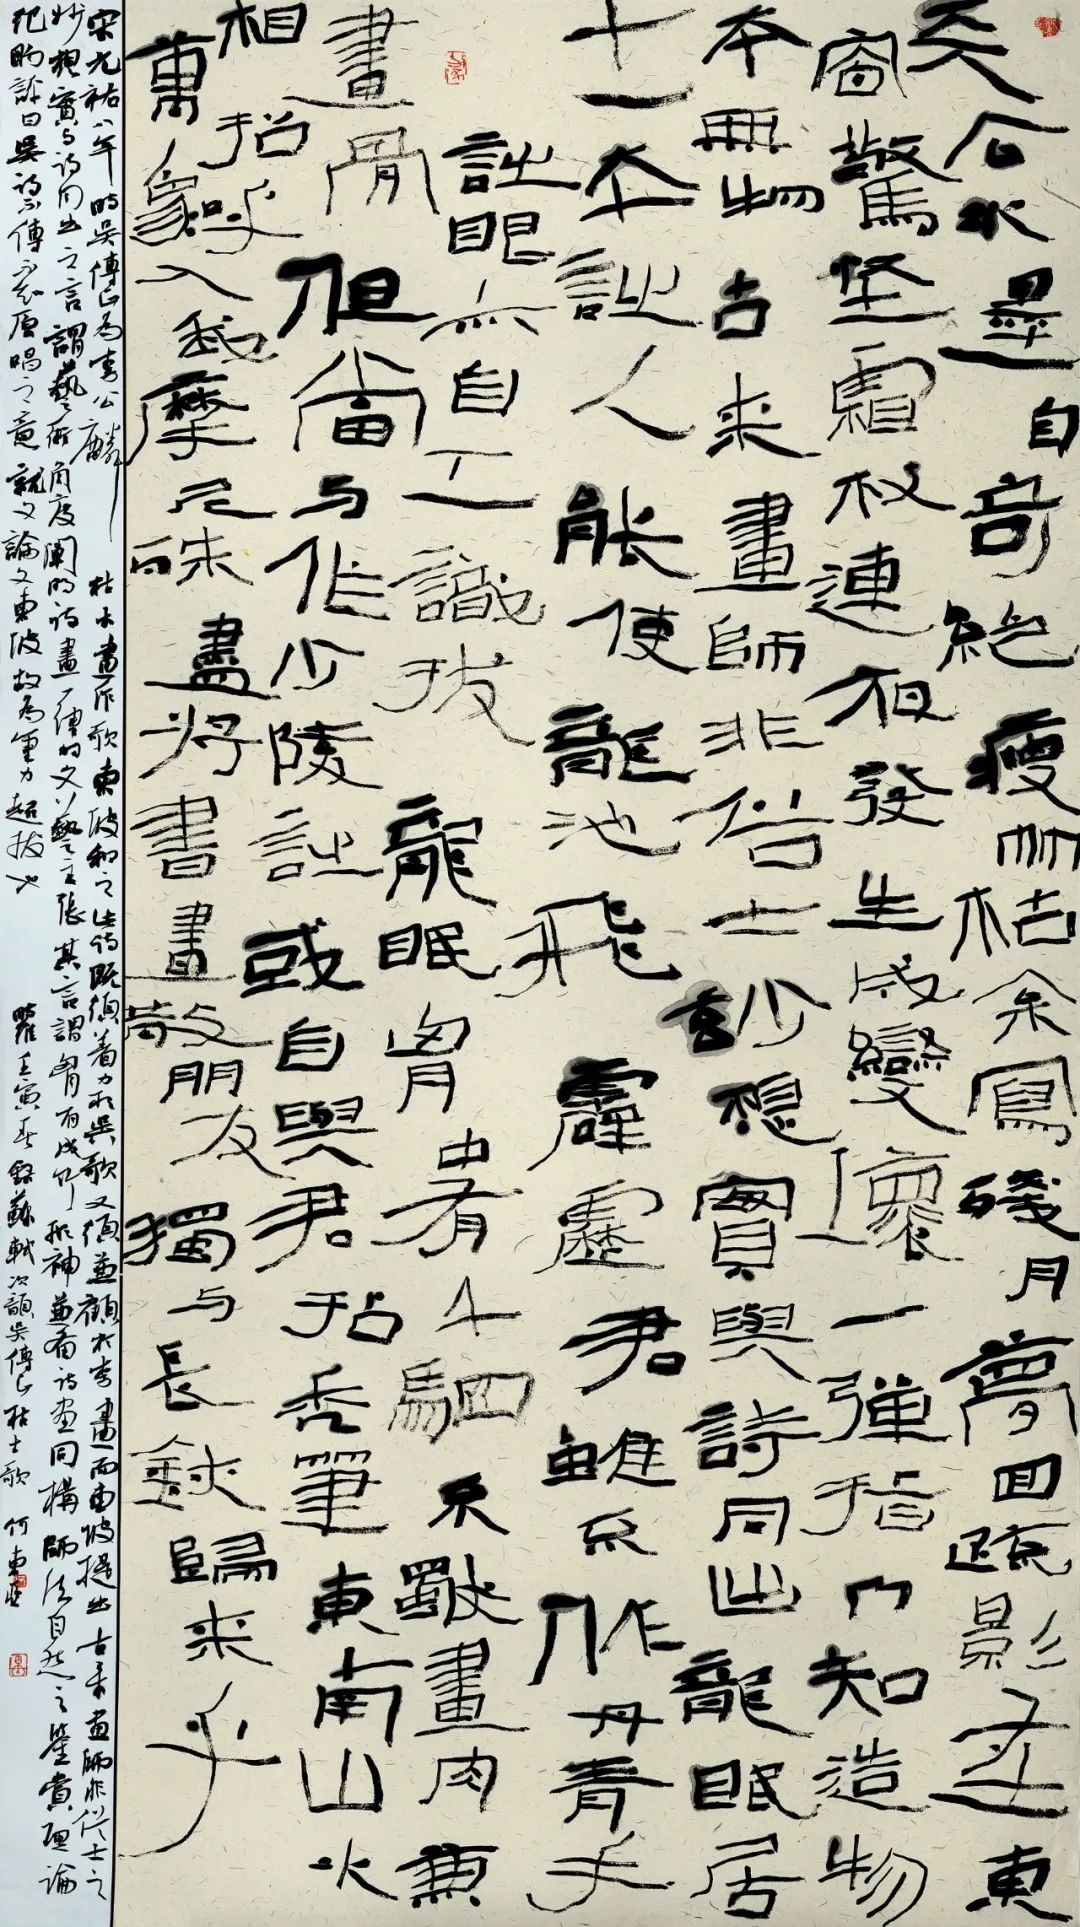 天公水墨自奇絕瘦竹枯松寫殘月夢回疏影在東
窗驚怪霜枝連夜發生成變壞一彈指乃知造物
本無物古来畫師非俗士玅想實與詩同出龍眠居
士本詩人能使龍池飛霹靂君雖不作丹青手
詩眼亦自工識拔龍眠胷中有千駟不獨畫肉兼
畫骨但當与作少陵詩或自與君拈禿筆東南山水
相招呼
萬象入我摩尼珠盡將書畫散朋友獨与長鋏歸来乎
宋元祐八年時吳傳正為李公麟枯木畫作歌東坡和之此詩既須着力於吳歌又須兼顧於李畫而東坡提出古来畫師非俗士之
妙想實与詩同出之言謂藝術角度闡明詩畫一律的文藝主張其言謂胷有成竹形神兼備詩画同構師法自然之鑒賞理論
紀昀評曰吳詩不傳不知原唱之意就文論文東坡故為筆力超拔也 壬寅春錄蘇軾次韻吳傳正枯木歌 何東